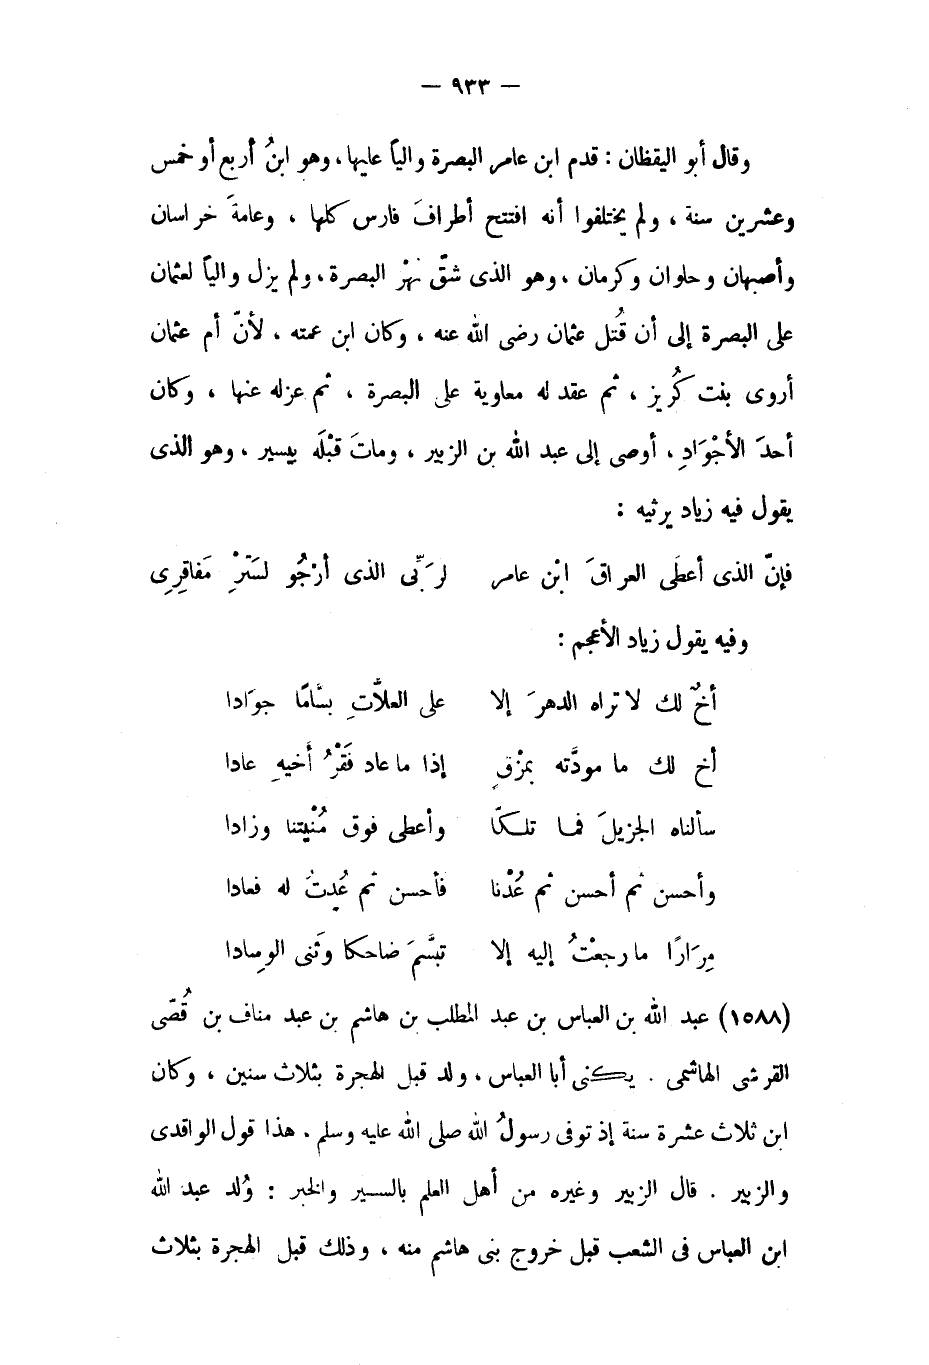 — ٩٣٣ —
وقال أبو اليقظان : قدم ابن عامر البصرة والياً عليها ، وهو ابنُ أربع أو خمس
وعشرين سنة ، ولم يختلفوا أنه افتتح أطرافَ فارس كلها ، وعامةَ خراسان
وأصبهان وحلوان وكرمان ، وهو الذى شقّ نهْر البصرة ، ولم يزل والياً لعثمان
على البصرة إلى أن قُتل عثمان رضى الله عنه ، وكان ابن عمته ، لأنّ أم عثمان
أروى بنت كُريز ، ثم عقد له معاوية على البصرة ، ثم عزله عنها ، وكان
أحدَ الأجْوَادِ ، أوصى إلى عبد الله بن الزبير ، وماتَ قبْلَه بيسير ، وهو الذى
يقول فيه زياد يرثيه :
فإنّ الذى أعطَى العراقَ ابْن عامر لرَبِّى الذى أرْجُو لسَتْرِ مَفاقِرِى
وفيه يقول زياد الأعجم :
أخٌ لك لا تراه الدهرَ إلا على العلَّاتِ بسَّامًا جوَادا
أخ لك ما مودَّته بمزْقٍ إذا ما عاد فَقْرُ أخيهِ عادا
سألناه الجزيلَ فما تلكّا وأعطى فوق مُنْيتنا وزادا
وأحسن ثم أحسن ثم عُدْنا فأحسن ثم عُدِتُ له فعادا
مِرَارًا ما رجعْتُ إليه إلا تبسَّمَ ضاحكا وثَنى الوِسادا
(١٥٨٨) عبد الله بن العباس بن عبد المطلب بن هاشم بن عبد مناف بن قُصّى
القرشى الهاشمى . يكنى أبا العباس ، ولد قبل الهجرة بثلاث سنين ، وكان
ابن ثلاث عشرة سنة إذ توفى رسولُ الله صلى الله عليه وسلم . هذا قول الواقدى
والزبير . قال الزبير وغيره من أهل العلم بالسير والخبر : وُلد عبد الله
ابن العباس فى الشعب قبل خروج بنى هاشم منه ، وذلك قبل الهجرة بثلاث